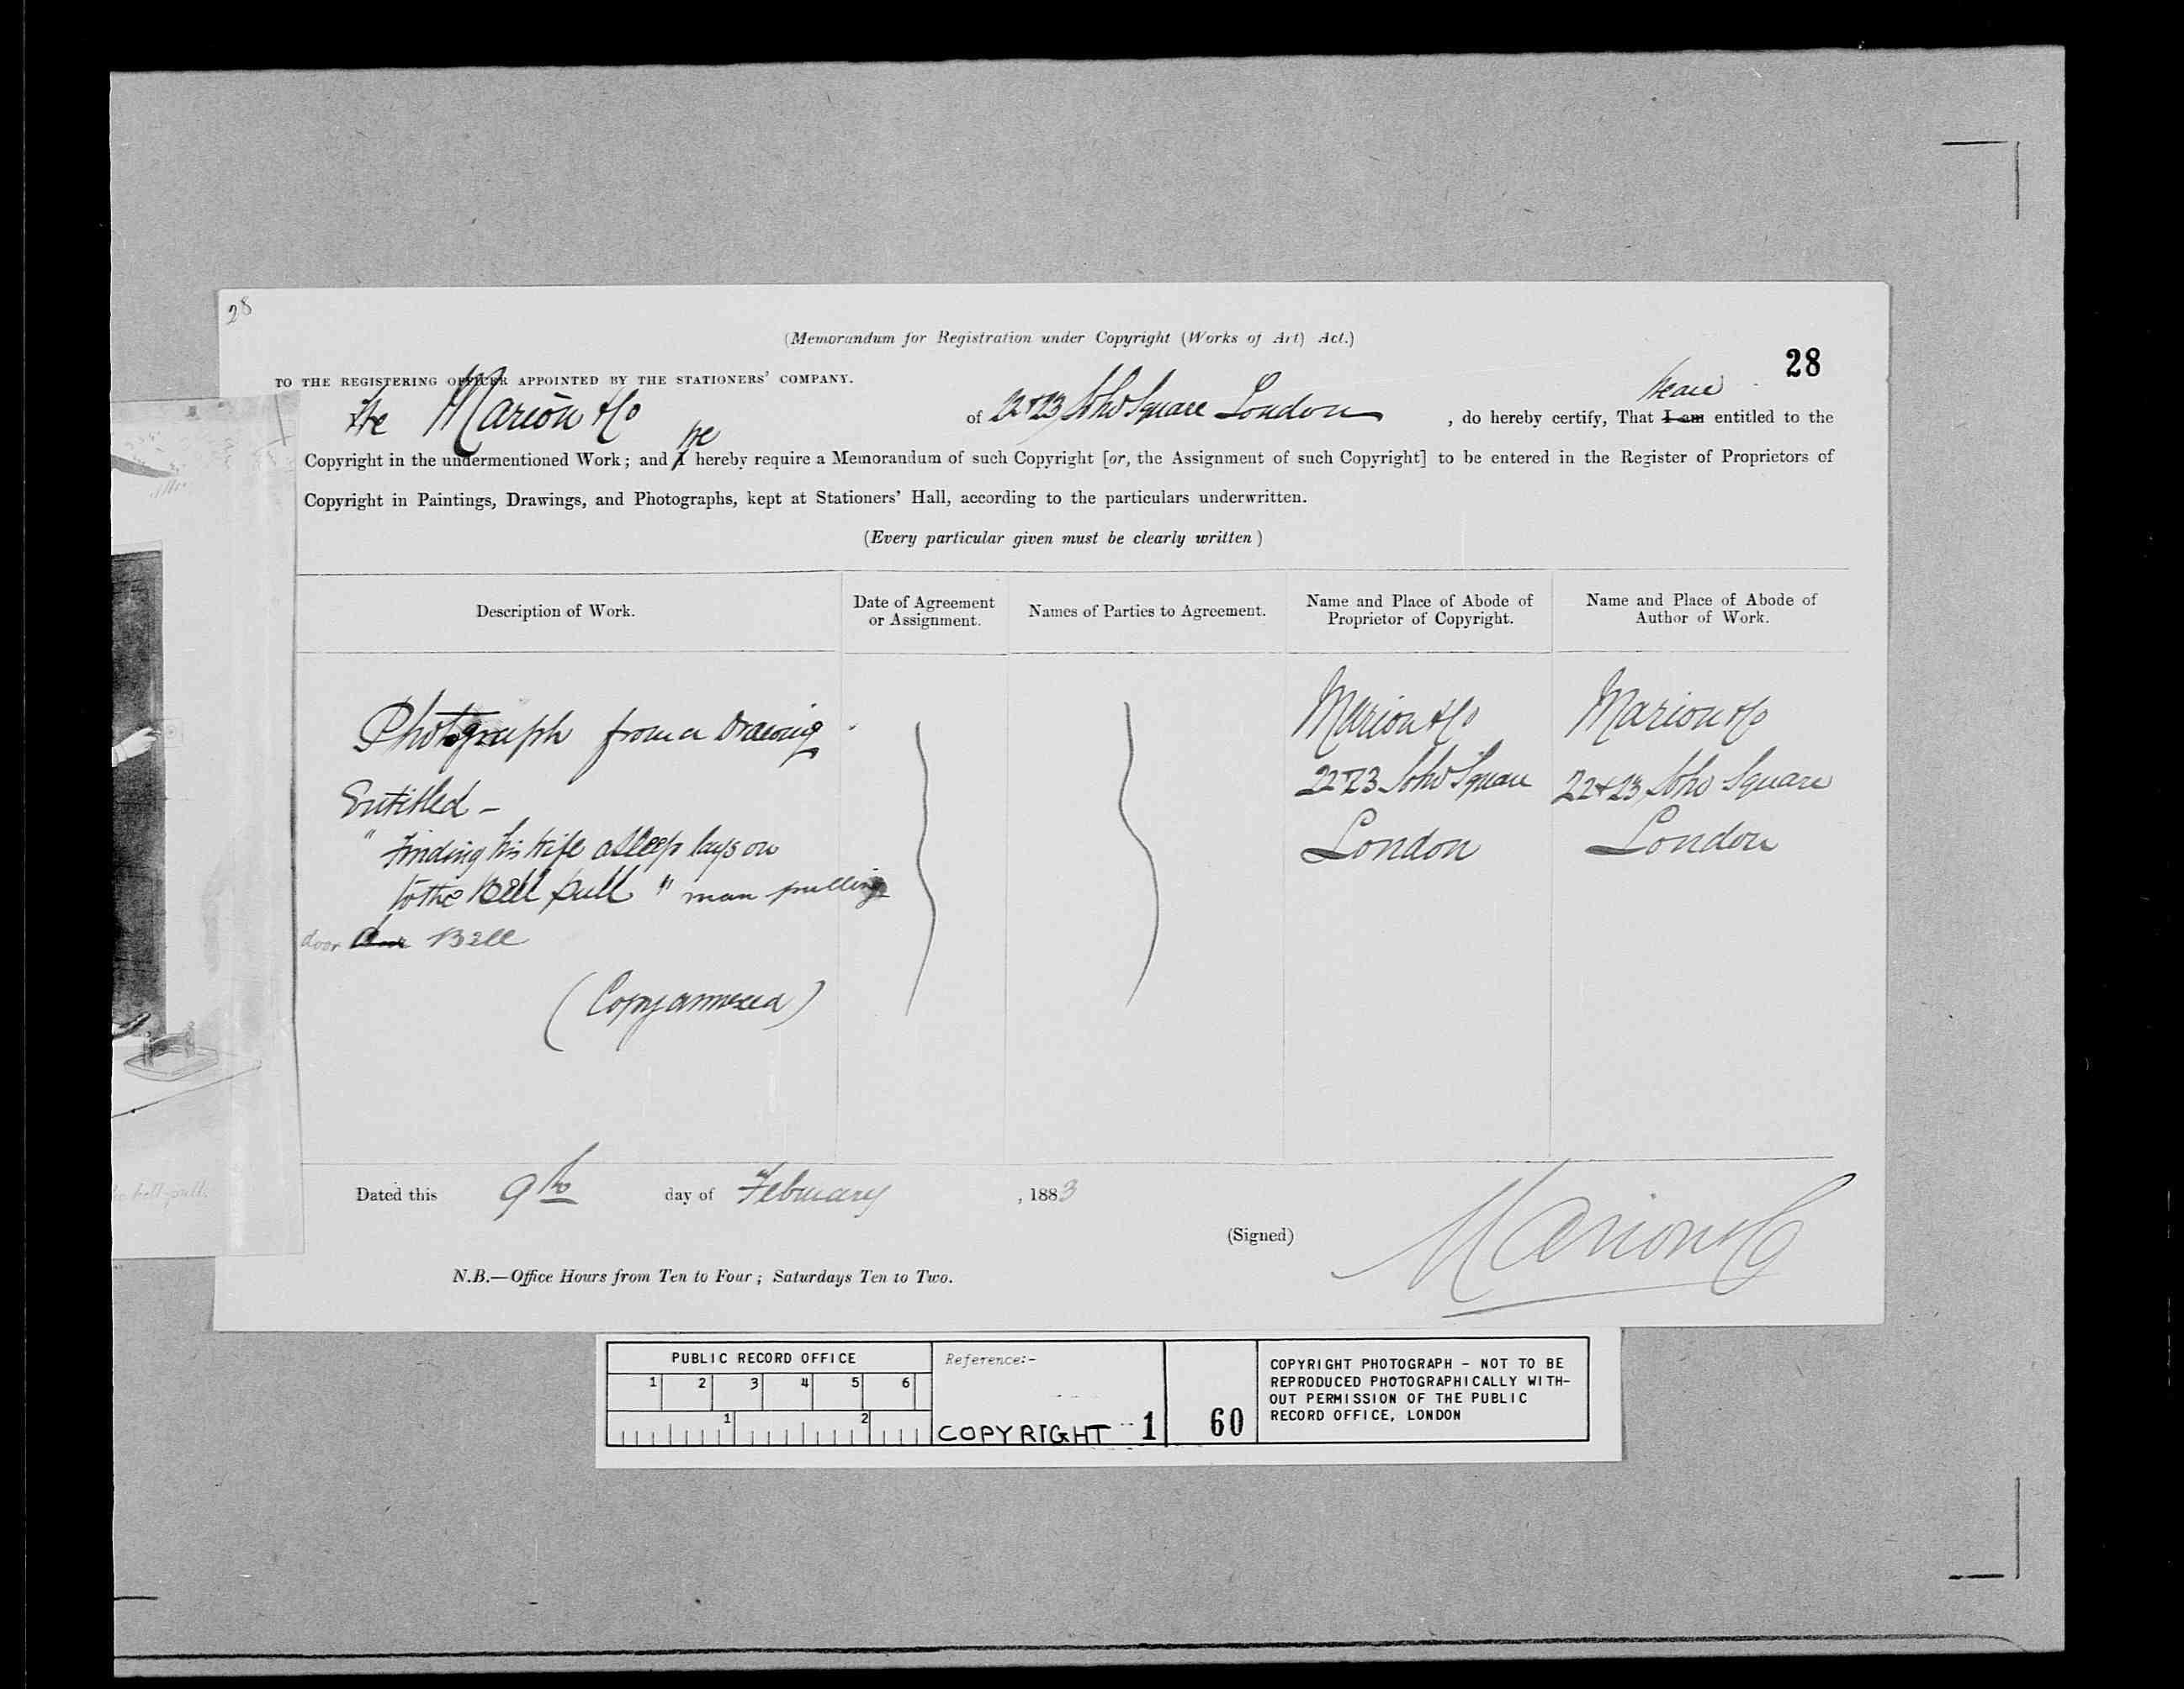 28
(Memorandum for Registration under Copyright (Works of Art) Act.)
28
TO THE REGISTERING OFFICER APPOINTED BY THE STATIONERS' COMPANY.
We are
We Marion & Co of 22 & 23 Soho Square London , do hereby certify, That I am entitled to the
We
Copyright in the undermentioned Work; and I hereby require a Memorandum of such Copyright [or, the Assignment of such Copyright] to be entered in the Register of Proprietors of
Copyright in Paintings, Drawings, and Photographs, kept at Stationers' Hall, according to the particulars underwritten.
(Every particular given must be clearly written)
Description of Work.
Date of Agreement
or Assignment.
Names of Parties to Agreement.
Name and Place of Abode of
Proprietor of Copyright.
Name and Place of Abode of
Author of Work.
Photograph from a Drawing
Entitled -
"Finding his Wife asleep lays on
to the Bell pull" man pulling
door Bell
(Copy annexed)
Marion & Co
22 & 23 Soho Square
London
Marion & Co
22 & 23 Soho Square
London
bell-pull.
Dated this 9th day of February , 1883
(Signed) Marion & Co
N.B.—Office Hours from Ten to Four; Saturdays Ten to Two.
PUBLIC RECORD OFFICE
1 2 3 4 5 6
1 2
Reference:-
COPYRIGHT 1
60
COPYRIGHT PHOTOGRAPH - NOT TO BE
REPRODUCED PHOTOGRAPHICALLY WITH-
OUT PERMISSION OF THE PUBLIC
RECORD OFFICE, LONDON